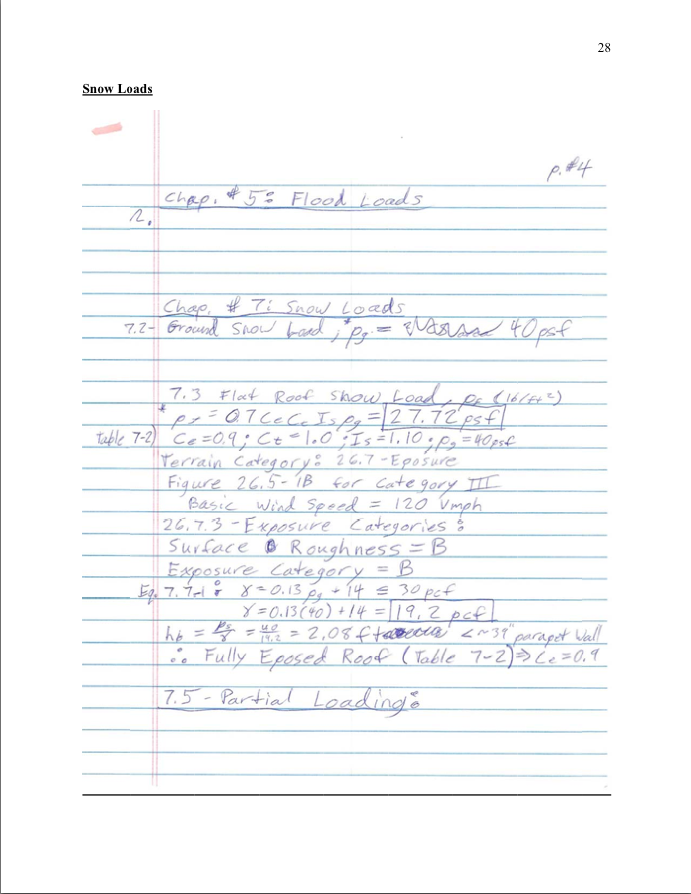 28
Snow Loads
p.#4
Chap. # 5: Flood Loads
Chap. # 7: Snow Loads
7.2- Ground Snow Load ; * pg = 40psf
7.3 Flat Roof Snow Load, pf (lb/ft²)
* pf = 0.7 Ce Ct Is pg = 27.72 psf
Table 7-2) Ce=0.9 ; Ct=1.0 ; Is=1.10 ; pg=40psf
Terrain Category: 26.7-Eposure
Figure 26.5-1B for Category III
Basic Wind Speed = 120 Vmph
26.7.3-Exposure Categories:
Surface Roughness = B
Exposure Category = B
Eq. 7.7-1: γ=0.13 pg + 14 ≤ 30 pcf
γ=0.13(40)+14= 19.2 pcf
hb = ps/γ = 40/19.2 = 2.08 ft <~39" parapet wall
∴ Fully Eposed Roof (Table 7-2) ⇒ Ce=0.9
7.5-Partial Loading: